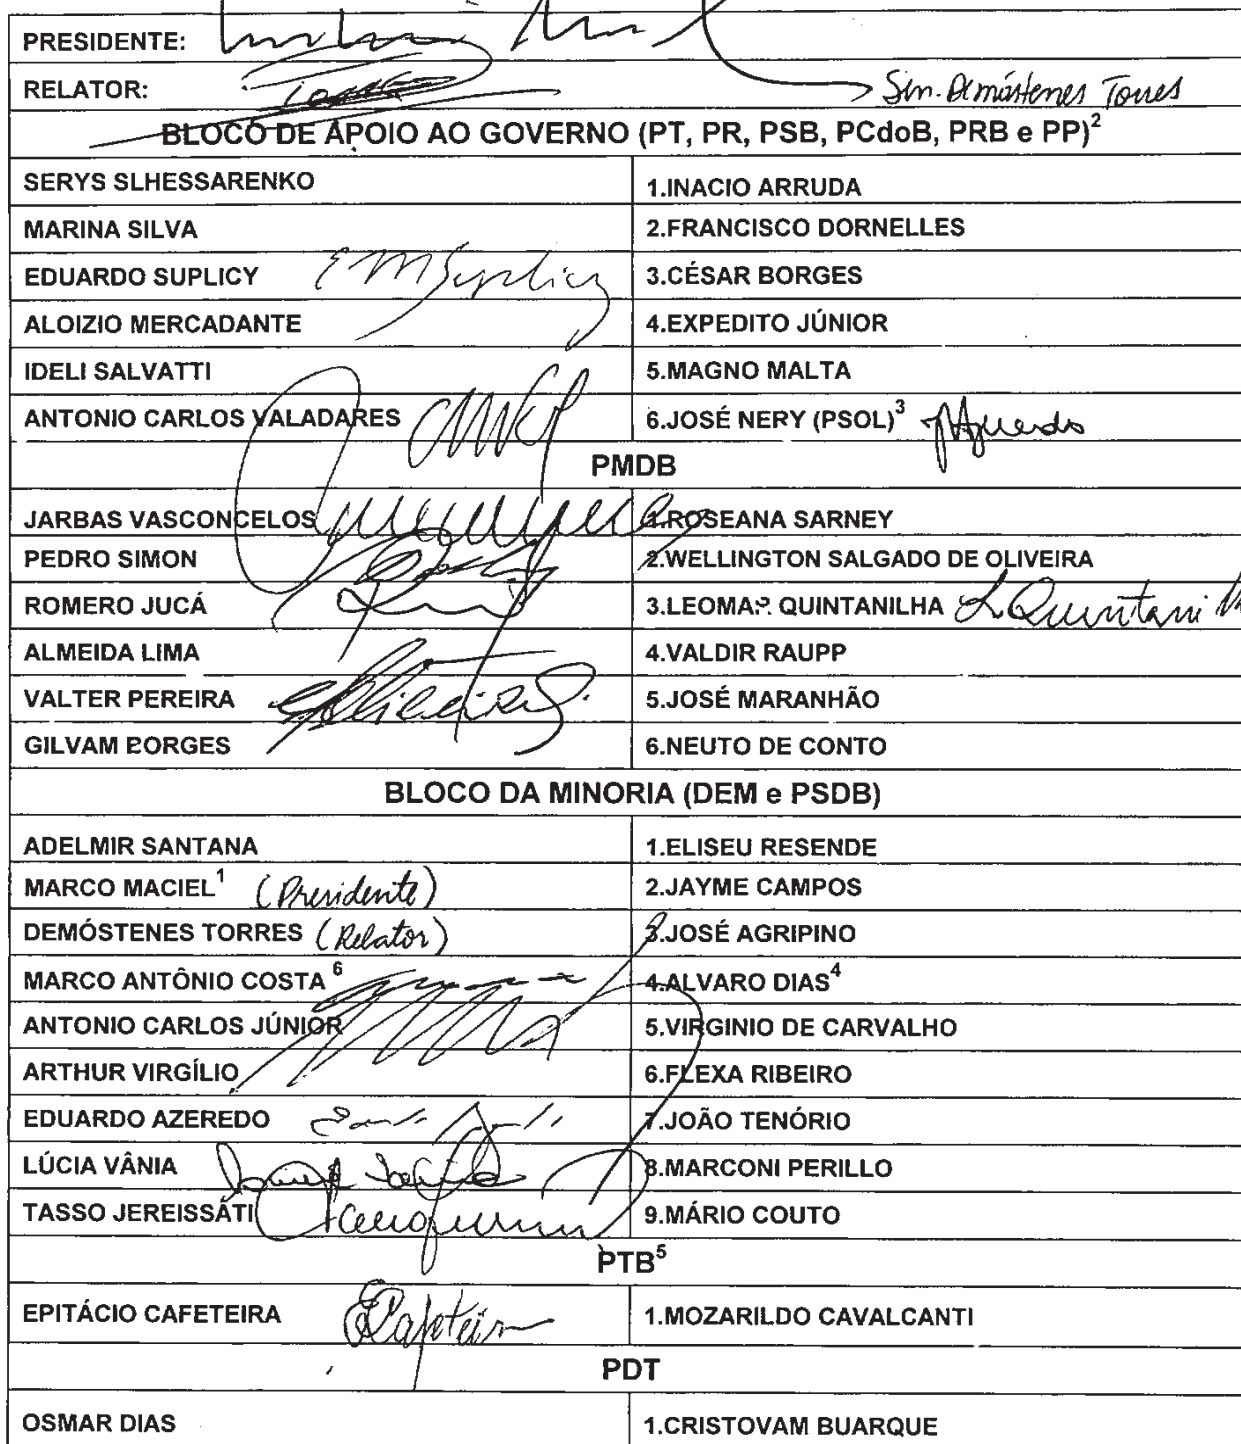 PRESIDENTE:
RELATOR: Sen. Demóstenes Torres
BLOCO DE APOIO AO GOVERNO (PT, PR, PSB, PCdoB, PRB e PP)2
SERYS SLHESSARENKO 1.INACIO ARRUDA
MARINA SILVA 2.FRANCISCO DORNELLES
EDUARDO SUPLICY EMSuplicy 3.CÉSAR BORGES
ALOIZIO MERCADANTE 4.EXPEDITO JÚNIOR
IDELI SALVATTI 5.MAGNO MALTA
ANTONIO CARLOS VALADARES 6.JOSÉ NERY (PSOL)3
PMDB
JARBAS VASCONCELOS 1.ROSEANA SARNEY
PEDRO SIMON 2.WELLINGTON SALGADO DE OLIVEIRA
ROMERO JUCÁ 3.LEOMAR QUINTANILHA
ALMEIDA LIMA 4.VALDIR RAUPP
VALTER PEREIRA 5.JOSÉ MARANHÃO
GILVAM BORGES 6.NEUTO DE CONTO
BLOCO DA MINORIA (DEM e PSDB)
ADELMIR SANTANA 1.ELISEU RESENDE
MARCO MACIEL1 (Presidente) 2.JAYME CAMPOS
DEMÓSTENES TORRES (Relator) 3.JOSÉ AGRIPINO
MARCO ANTÔNIO COSTA 6 4.ALVARO DIAS4
ANTONIO CARLOS JÚNIOR 5.VIRGINIO DE CARVALHO
ARTHUR VIRGÍLIO 6.FLEXA RIBEIRO
EDUARDO AZEREDO 7.JOÃO TENÓRIO
LÚCIA VÂNIA 8.MARCONI PERILLO
TASSO JEREISSATI 9.MÁRIO COUTO
PTB5
EPITÁCIO CAFETEIRA ECafeteira 1.MOZARILDO CAVALCANTI
PDT
OSMAR DIAS 1.CRISTOVAM BUARQUE